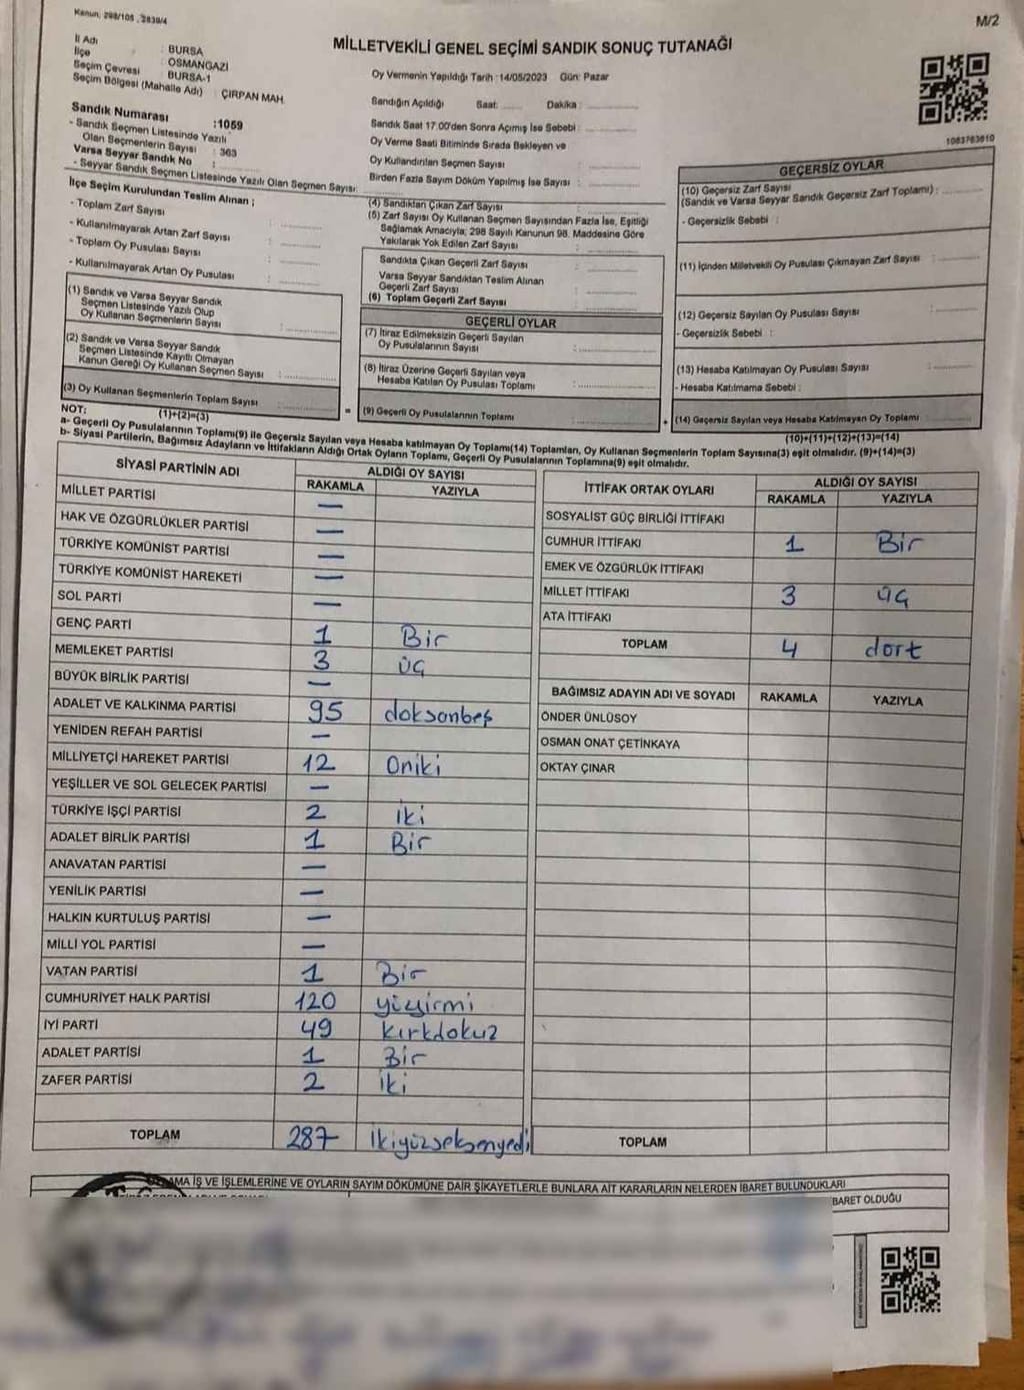 Kanun: 298/105 , 2839/4
M/2
MİLLETVEKİLİ GENEL SEÇİMİ SANDIK SONUÇ TUTANAĞI
İl Adı : BURSA
İlçe : OSMANGAZİ
Seçim Çevresi : BURSA-1
Seçim Bölgesi (Mahalle Adı) : ÇIRPAN MAH.
Sandık Numarası :1059
- Sandık Seçmen Listesinde Yazılı
Olan Seçmenlerin Sayısı : 363
Varsa Seyyar Sandık No :
- Seyyar Sandık Seçmen Listesinde Yazılı Olan Seçmen Sayısı:
Oy Vermenin Yapıldığı Tarih :14/05/2023 Gün: Pazar
Sandığın Açıldığı Saat: Dakika :
Sandık Saat 17.00'den Sonra Açımış İse Sebebi :
Oy Verme Saati Bitiminde Sırada Bekleyen ve
Oy Kullandırılan Seçmen Sayısı :
Birden Fazla Sayım Döküm Yapılmış İse Sayısı :
1083763810
İlçe Seçim Kurulundan Teslim Alınan ;
- Toplam Zarf Sayısı :
- Kullanılmayarak Artan Zarf Sayısı :
- Toplam Oy Pusulası Sayısı :
- Kullanılmayarak Artan Oy Pusulası :
(1) Sandık ve Varsa Seyyar Sandık
Seçmen Listesinde Yazılı Olup
Oy Kullanan Seçmenlerin Sayısı :
(2) Sandık ve Varsa Seyyar Sandık
Seçmen Listesinde Kayıtlı Olmayan
Kanun Gereği Oy Kullanan Seçmen Sayısı :
(3) Oy Kullanan Seçmenlerin Toplam Sayısı :
(1)+(2)=(3)
(4) Sandıktan Çıkan Zarf Sayısı :
(5) Zarf Sayısı Oy Kullanan Seçmen Sayısından Fazla İse, Eşitliği
Sağlamak Amacıyla; 298 Sayılı Kanunun 98. Maddesine Göre
Yakılarak Yok Edilen Zarf Sayısı :
Sandıkta Çıkan Geçerli Zarf Sayısı :
Varsa Seyyar Sandıktan Teslim Alınan
Geçerli Zarf Sayısı :
(6) Toplam Geçerli Zarf Sayısı :
GEÇERLİ OYLAR
(7) İtiraz Edilmeksizin Geçerli Sayılan
Oy Pusulalarının Sayısı :
(8) İtiraz Üzerine Geçerli Sayılan veya
Hesaba Katılan Oy Pusulası Toplamı :
= (9) Geçerli Oy Pusulalarının Toplamı :
GEÇERSİZ OYLAR
(10) Geçersiz Zarf Sayısı
(Sandık ve Varsa Seyyar Sandık Geçersiz Zarf Toplamı) :
- Geçersizlik Sebebi :
(11) İçinden Milletvekili Oy Pusulası Çıkmayan Zarf Sayısı :
(12) Geçersiz Sayılan Oy Pusulası Sayısı :
- Geçersizlik Sebebi :
(13) Hesaba Katılmayan Oy Pusulası Sayısı :
- Hesaba Katılmama Sebebi :
+ (14) Geçersiz Sayılan veya Hesaba Katılmayan Oy Toplamı
(10)+(11)+(12)+(13)=(14)
NOT:
a- Geçerli Oy Pusulalarının Toplamı(9) ile Geçersiz Sayılan veya Hesaba katılmayan Oy Toplamı(14) Toplamları, Oy Kullanan Seçmenlerin Toplam Sayısına(3) eşit olmalıdır. (9)+(14)=(3)
b- Siyasi Partilerin, Bağımsız Adayların ve İttifakların Aldığı Ortak Oyların Toplamı, Geçerli Oy Pusulalarının Toplamına(9) eşit olmalıdır.
SİYASİ PARTİNİN ADI ALDIĞI OY SAYISI
RAKAMLA YAZIYLA
MİLLET PARTİSİ —
HAK VE ÖZGÜRLÜKLER PARTİSİ —
TÜRKİYE KOMÜNİST PARTİSİ —
TÜRKİYE KOMÜNİST HAREKETİ —
SOL PARTİ —
GENÇ PARTİ 1 Bir
MEMLEKET PARTİSİ 3 üç
BÜYÜK BİRLİK PARTİSİ —
ADALET VE KALKINMA PARTİSİ 95 doksanbeş
YENİDEN REFAH PARTİSİ —
MİLLİYETÇİ HAREKET PARTİSİ 12 Oniki
YEŞİLLER VE SOL GELECEK PARTİSİ —
TÜRKİYE İŞÇİ PARTİSİ 2 iki
ADALET BİRLİK PARTİSİ 1 Bir
ANAVATAN PARTİSİ —
YENİLİK PARTİSİ —
HALKIN KURTULUŞ PARTİSİ —
MİLLİ YOL PARTİSİ —
VATAN PARTİSİ 1 Bir
CUMHURİYET HALK PARTİSİ 120 yüzyirmi
İYİ PARTİ 49 kırkdokuz
ADALET PARTİSİ 1 Bir
ZAFER PARTİSİ 2 iki
TOPLAM 287 ikiyüzseksenyedi
İTTİFAK ORTAK OYLARI ALDIĞI OY SAYISI
RAKAMLA YAZIYLA
SOSYALİST GÜÇ BİRLİĞİ İTTİFAKI
CUMHUR İTTİFAKI 1 Bir
EMEK VE ÖZGÜRLÜK İTTİFAKI
MİLLET İTTİFAKI 3 üç
ATA İTTİFAKI
TOPLAM 4 dort
BAĞIMSIZ ADAYIN ADI VE SOYADI RAKAMLA YAZIYLA
ÖNDER ÜNLÜSOY
OSMAN ONAT ÇETİNKAYA
OKTAY ÇINAR
TOPLAM
AMA İŞ VE İŞLEMLERİNE VE OYLARIN SAYIM DÖKÜMÜNE DAİR ŞİKAYETLERLE BUNLARA AİT KARARLARIN NELERDEN İBARET BULUNDUKLARI
BARET OLDUĞU